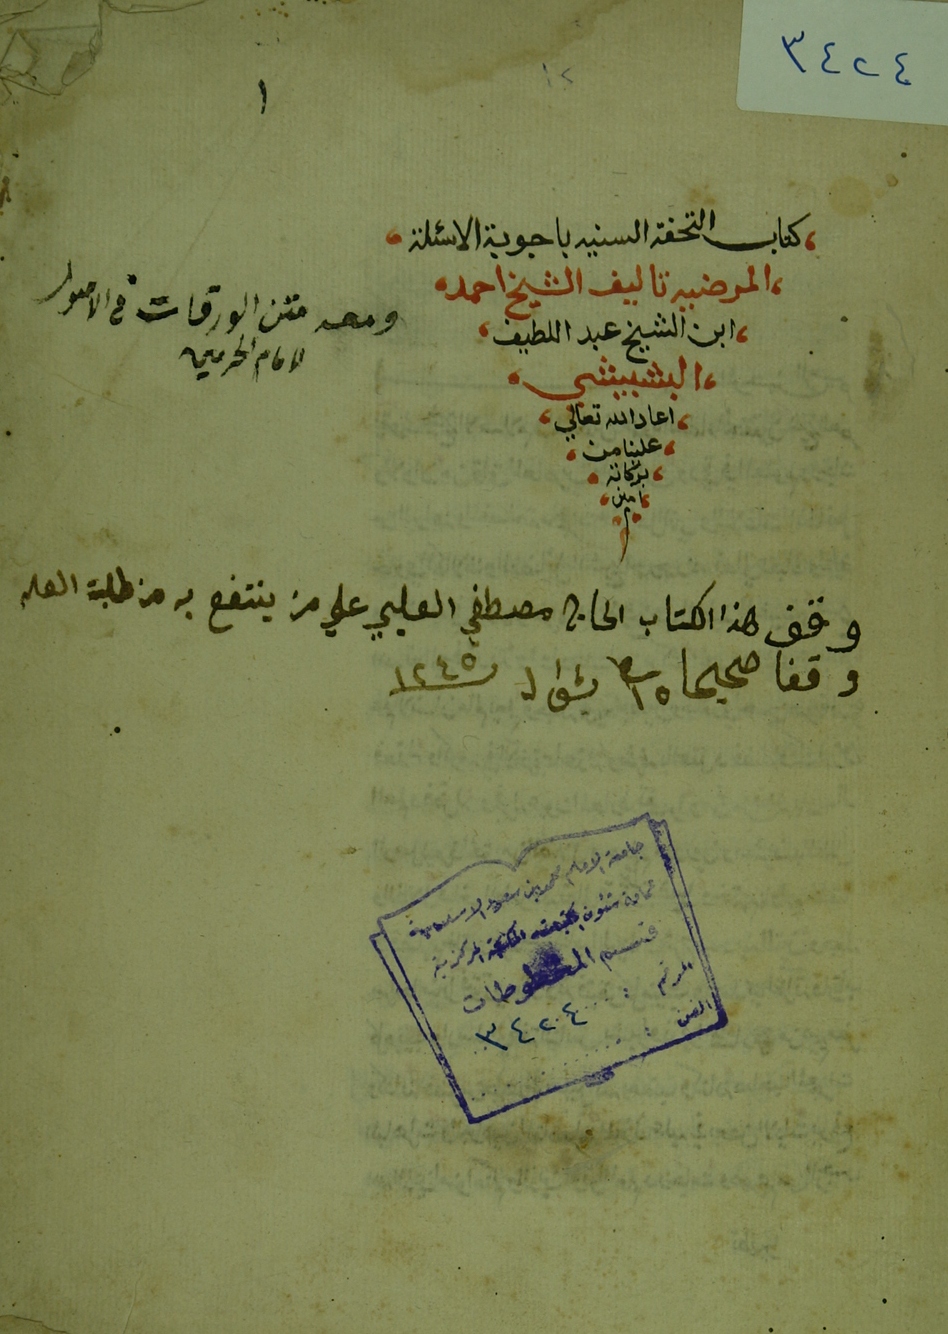 ٣٤٢٤
١٢
١
كتاب التحفة السنيه باجوبة الاسئلة
المرضيه تاليف الشيخ احمد
ابن الشيخ عبد اللطيف
البشبيشى
اعاد الله تعالي
علينا من
بركاته
امين
م
ومعه متن الورقات في الاصول
لامام الحرمين
وقف هذا الكتاب الحاج مصطفي العلبي علي من ينتفع به من طلبة العلم
وقفا صحيحا ١٥ شوال ١٢٤٥
جامعة الإمام محمد بن سعود الإسلامية
عمادة شئون المكتبات المكتبة المركزية
قسم المخطوطات
الرقم : ٣٤٢٤
الفن :